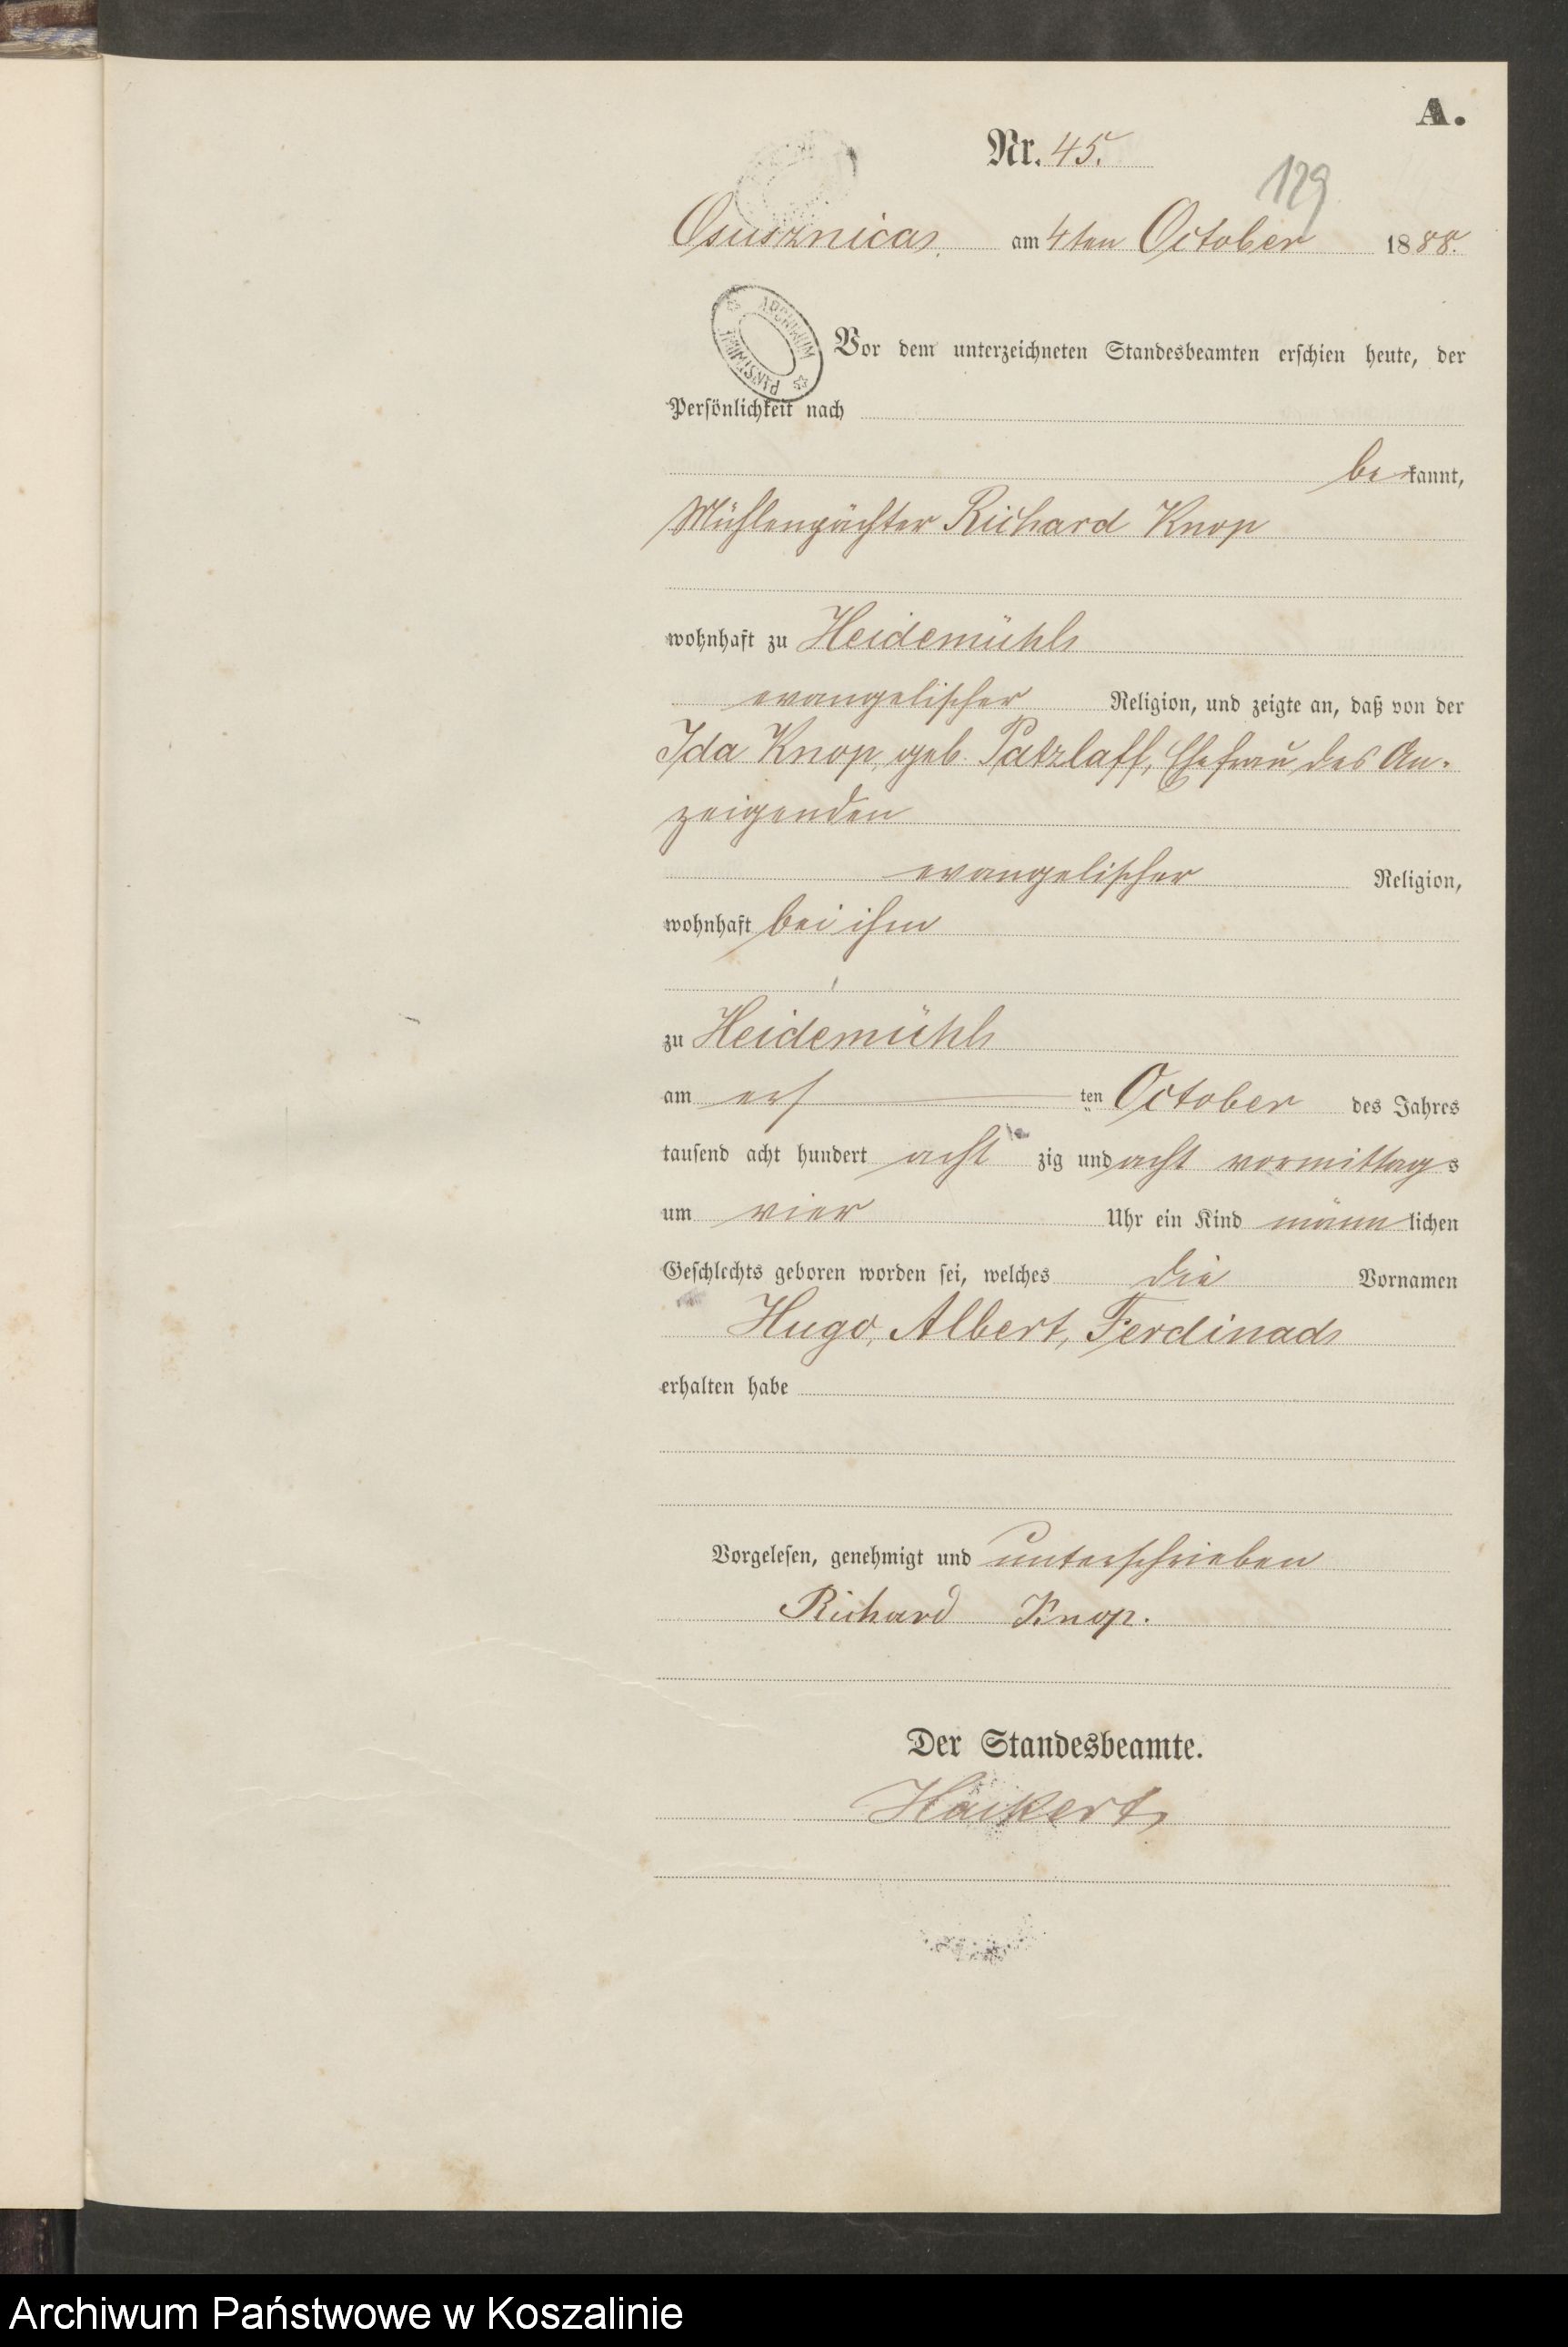 A.
Nr. 45.
129
Osusznica am 4ten October 1888.
ARCHIWUM PAŃSTWOWE
Vor dem unterzeichneten Standesbeamten erschien heute, der
Persönlichkeit nach
bekannt,
Mühlenpächter Richard Knop
wohnhaft zu Heidemühl
evangelischer Religion, und zeigte an, daß von der
Ida Knop, geb. Patzlaff, Ehefrau des An-
zeigenden
evangelischer Religion,
wohnhaft bei ihm
zu Heidemühl
am ers ten October des Jahres
tausend acht hundert acht zig und acht vormittags
um vier Uhr ein Kind männlichen
Geschlechts geboren worden sei, welches die Vornamen
Hugo, Albert, Ferdinad
erhalten habe
Vorgelesen, genehmigt und unterschrieben
Richard Knop.
Der Standesbeamte.
Archiwum Państwowe w Koszalinie